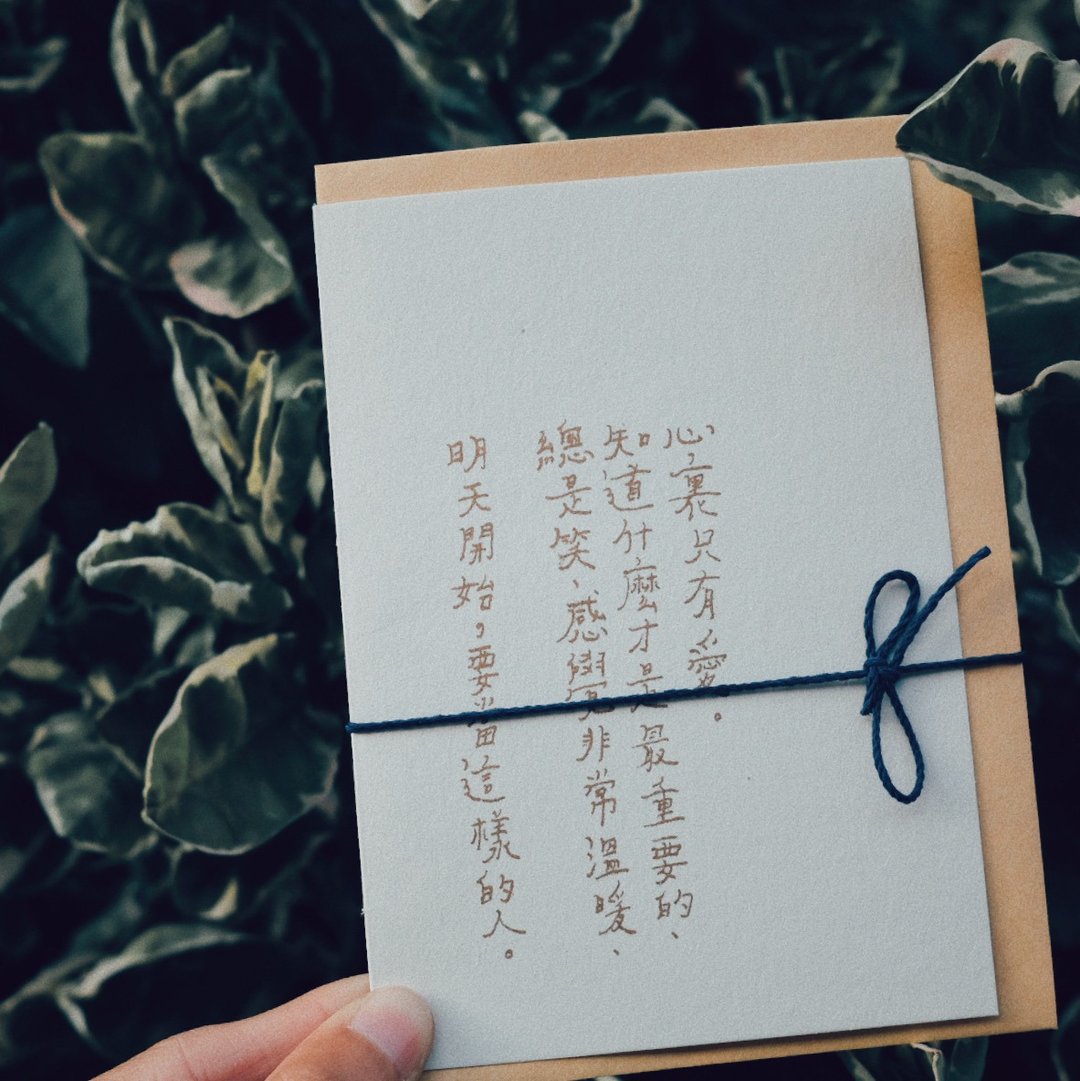 心裏只有愛。
知道什麼才是最重要的、
總是笑、感覺非常溫暖、
明天開始。要當這樣的人。